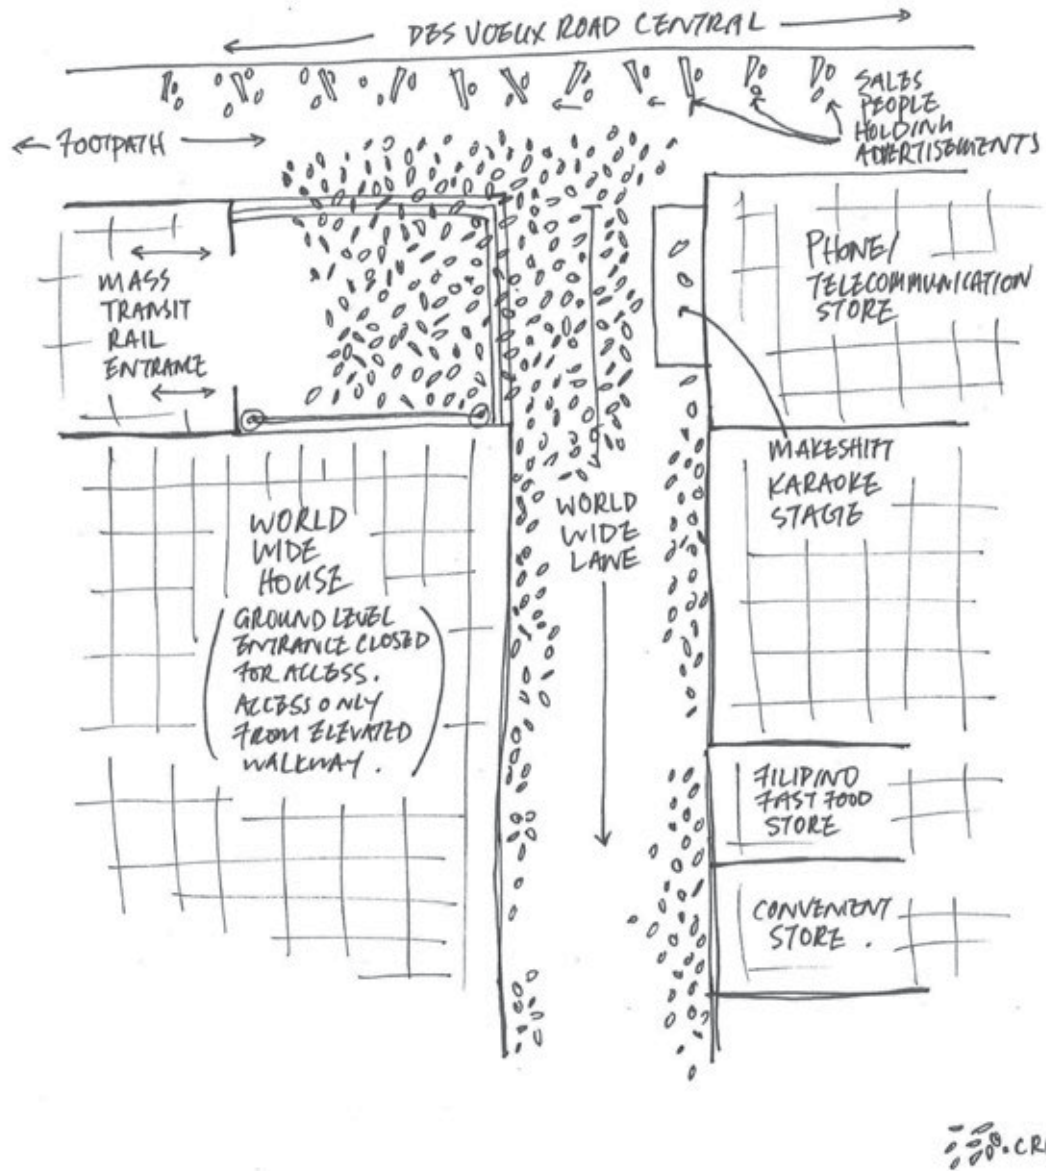 DES VOEUX ROAD CENTRAL
SALES
PEOPLE
HOLDING
ADVERTISEMENTS
FOOTPATH
MASS
TRANSIT
RAIL
ENTRANCE
PHONE/
TELECOMMUNICATION
STORE
MAKESHIFT
KARAOKE
STAGE
WORLD
WIDE
LANE
WORLD
WIDE
HOUSE
(GROUND LEVEL
ENTRANCE CLOSED
FOR ACCESS.
ACCESS ONLY
FROM ELEVATED
WALKWAY.)
FILIPINO
FAST FOOD
STORE
CONVENIENT
STORE.